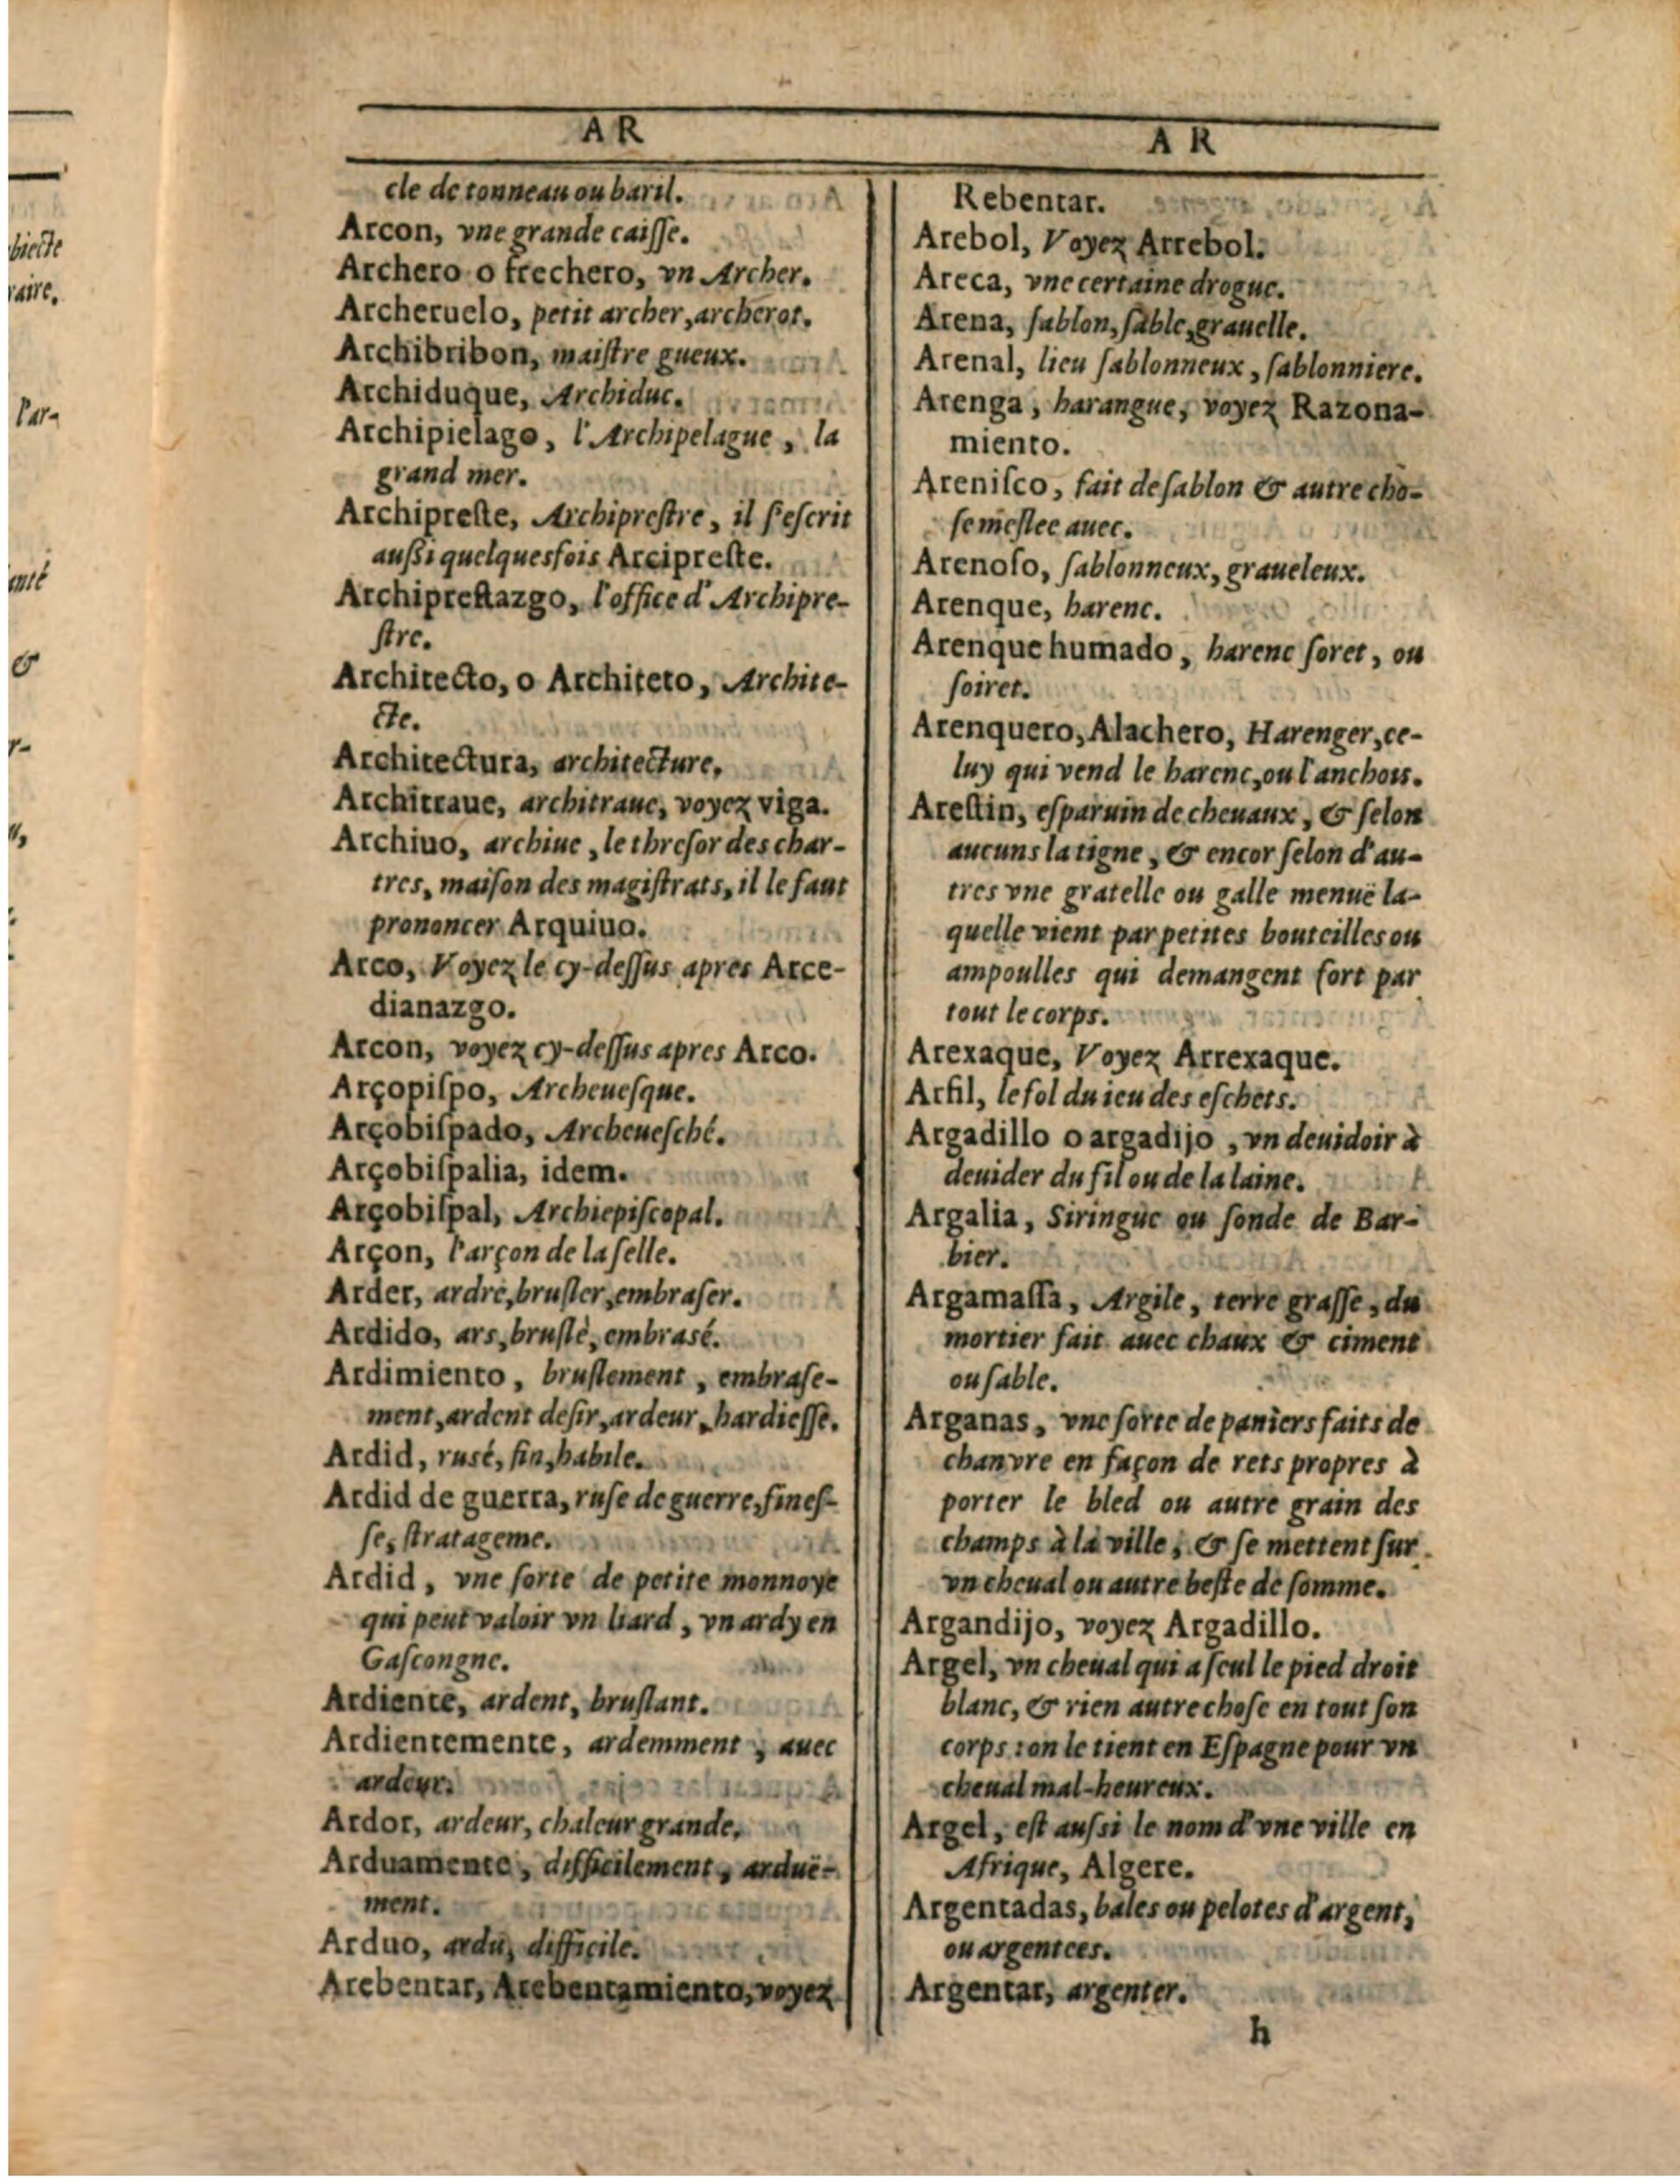 AR
cle de tonneau ou baril.
Arcon, vne grande caiſſe.
Archero o frechero, vn Archer.
Archeruelo, petit archer, archerot.
Archibribon, maiſtre gueux.
Archiduque, Archiduc.
Archipielago, l'Archipelague, la
grand mer.
Archipreſte, Archipreſtre, il ſ'eſcrit
auſſi quelquesfois Arcipreſte.
Archipreſtazgo, l'office d'Archipre-
ſtre.
Architecto, o Architeto, Archite-
cte.
Architectura, architecture,
Architraue, architraue, voyez viga.
Archiuo, archiue, le threſor des char-
tres, maiſon des magiſtrats, il le faut
prononcer Arquiuo.
Arco, Voyez le cy-deſſus apres Arce-
dianazgo.
Arcon, voyez cy-deſſus apres Arco.
Arçopiſpo, Archeueſque.
Arçobiſpado, Archeueſché.
Arçobiſpalia, idem.
Arçobiſpal, Archiepiſcopal.
Arçon, l'arçon de la ſelle.
Arder, ardre, bruſler, embraſer.
Ardido, ars, bruſlé, embrasé.
Ardimiento, bruſlement, embraſe-
ment, ardent deſir, ardeur, hardieſſe.
Ardid, rusé, fin, habile.
Ardid de guerra, ruſe de guerre, fineſ-
ſe, ſtratageme.
Ardid, vne ſorte de petite monnoye
qui peut valoir vn liard, vn ardy en
Gaſcongne.
Ardiente, ardent, bruſlant.
Ardientemente, ardemment, auec
ardeur.
Ardor, ardeur, chaleur grande.
Arduamente, difficilement, arduë-
ment.
Arduo, ardu, difficile.
Arebentar, Arebentamiento, voyez
AR
Rebentar.
Arebol, Voyez Arrebol.
Areca, vne certaine drogue.
Arena, ſablon, ſable, grauelle.
Arenal, lieu ſablonneux, ſablonniere.
Arenga, harangue, voyez Razona-
miento.
Areniſco, fait de ſablon & autre cho-
ſe meſlee auec.
Arenoſo, ſablonneux, graueleux.
Arenque, harenc.
Arenque humado, harenc ſoret, ou
ſoiret.
Arenquero, Alachero, Harenger, ce-
luy qui vend le harenc, ou l'anchois.
Areſtin, eſparuin de cheuaux, & ſelon
aucuns la tigne, & encor ſelon d'au-
tres vne gratelle ou galle menuë la-
quelle vient par petites bouteilles ou
ampoulles qui demangent fort par
tout le corps.
Arexaque, Voyez Arrexaque.
Arfil, le fol du ieu des eſchets.
Argadillo o argadijo, vn deuidoir à
deuider du fil ou de la laine.
Argalia, Siringue ou ſonde de Bar-
bier.
Argamaſſa, Argile, terre graſſe, du
mortier fait auec chaux & ciment
ou ſable.
Arganas, vne ſorte de paniers faits de
chanvre en façon de rets propres à
porter le bled ou autre grain des
champs à la ville, & ſe mettent ſur
vn cheual ou autre beſte de ſomme.
Argandijo, voyez Argadillo.
Argel, vn cheual qui a ſeul le pied droit
blanc, & rien autre choſe en tout ſon
corps: on le tient en Eſpagne pour vn
cheual mal-heureux.
Argel, eſt auſſi le nom d'vne ville en
Afrique, Algere.
Argentadas, bales ou pelotes d'argent,
ou argentees.
Argentar, argenter.
h